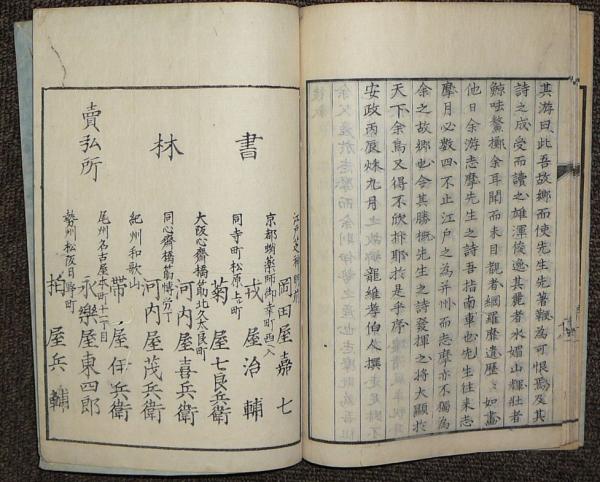 其游曰此吾故鄉而使先生先著鞭為可恨焉及其
詩之成受而讀之雄渾俊逸其麗者水媚山輝壯者
鯨呿鼇擲余耳聞而未目觀者網羅靡遺歷〻如畫
他日余游志摩先生之詩吾指南車也先生往来志
摩月必數四不止江戶之為并州而志摩亦不獨為
余之故鄉也会其勝概先生之詩發揮之將大顕於
天下余焉又得不欣抃耶於是乎序
安政丙辰秌九月 龍維孝伯仁撰
書林
岡田屋嘉七
京都蛸薬師御幸町西入
戎屋治輔
同寺町松原上町
菊屋七良兵衛
大阪心齋橋筋北久太良町
河内屋喜兵衛
同心齋橋筋博労丁
河内屋茂兵衛
紀州和歌山
帯屋伊兵衛
尾州名古屋本町十一丁目
永樂屋東四郎
勢州松阪日野町
賣弘所
柏屋兵輔